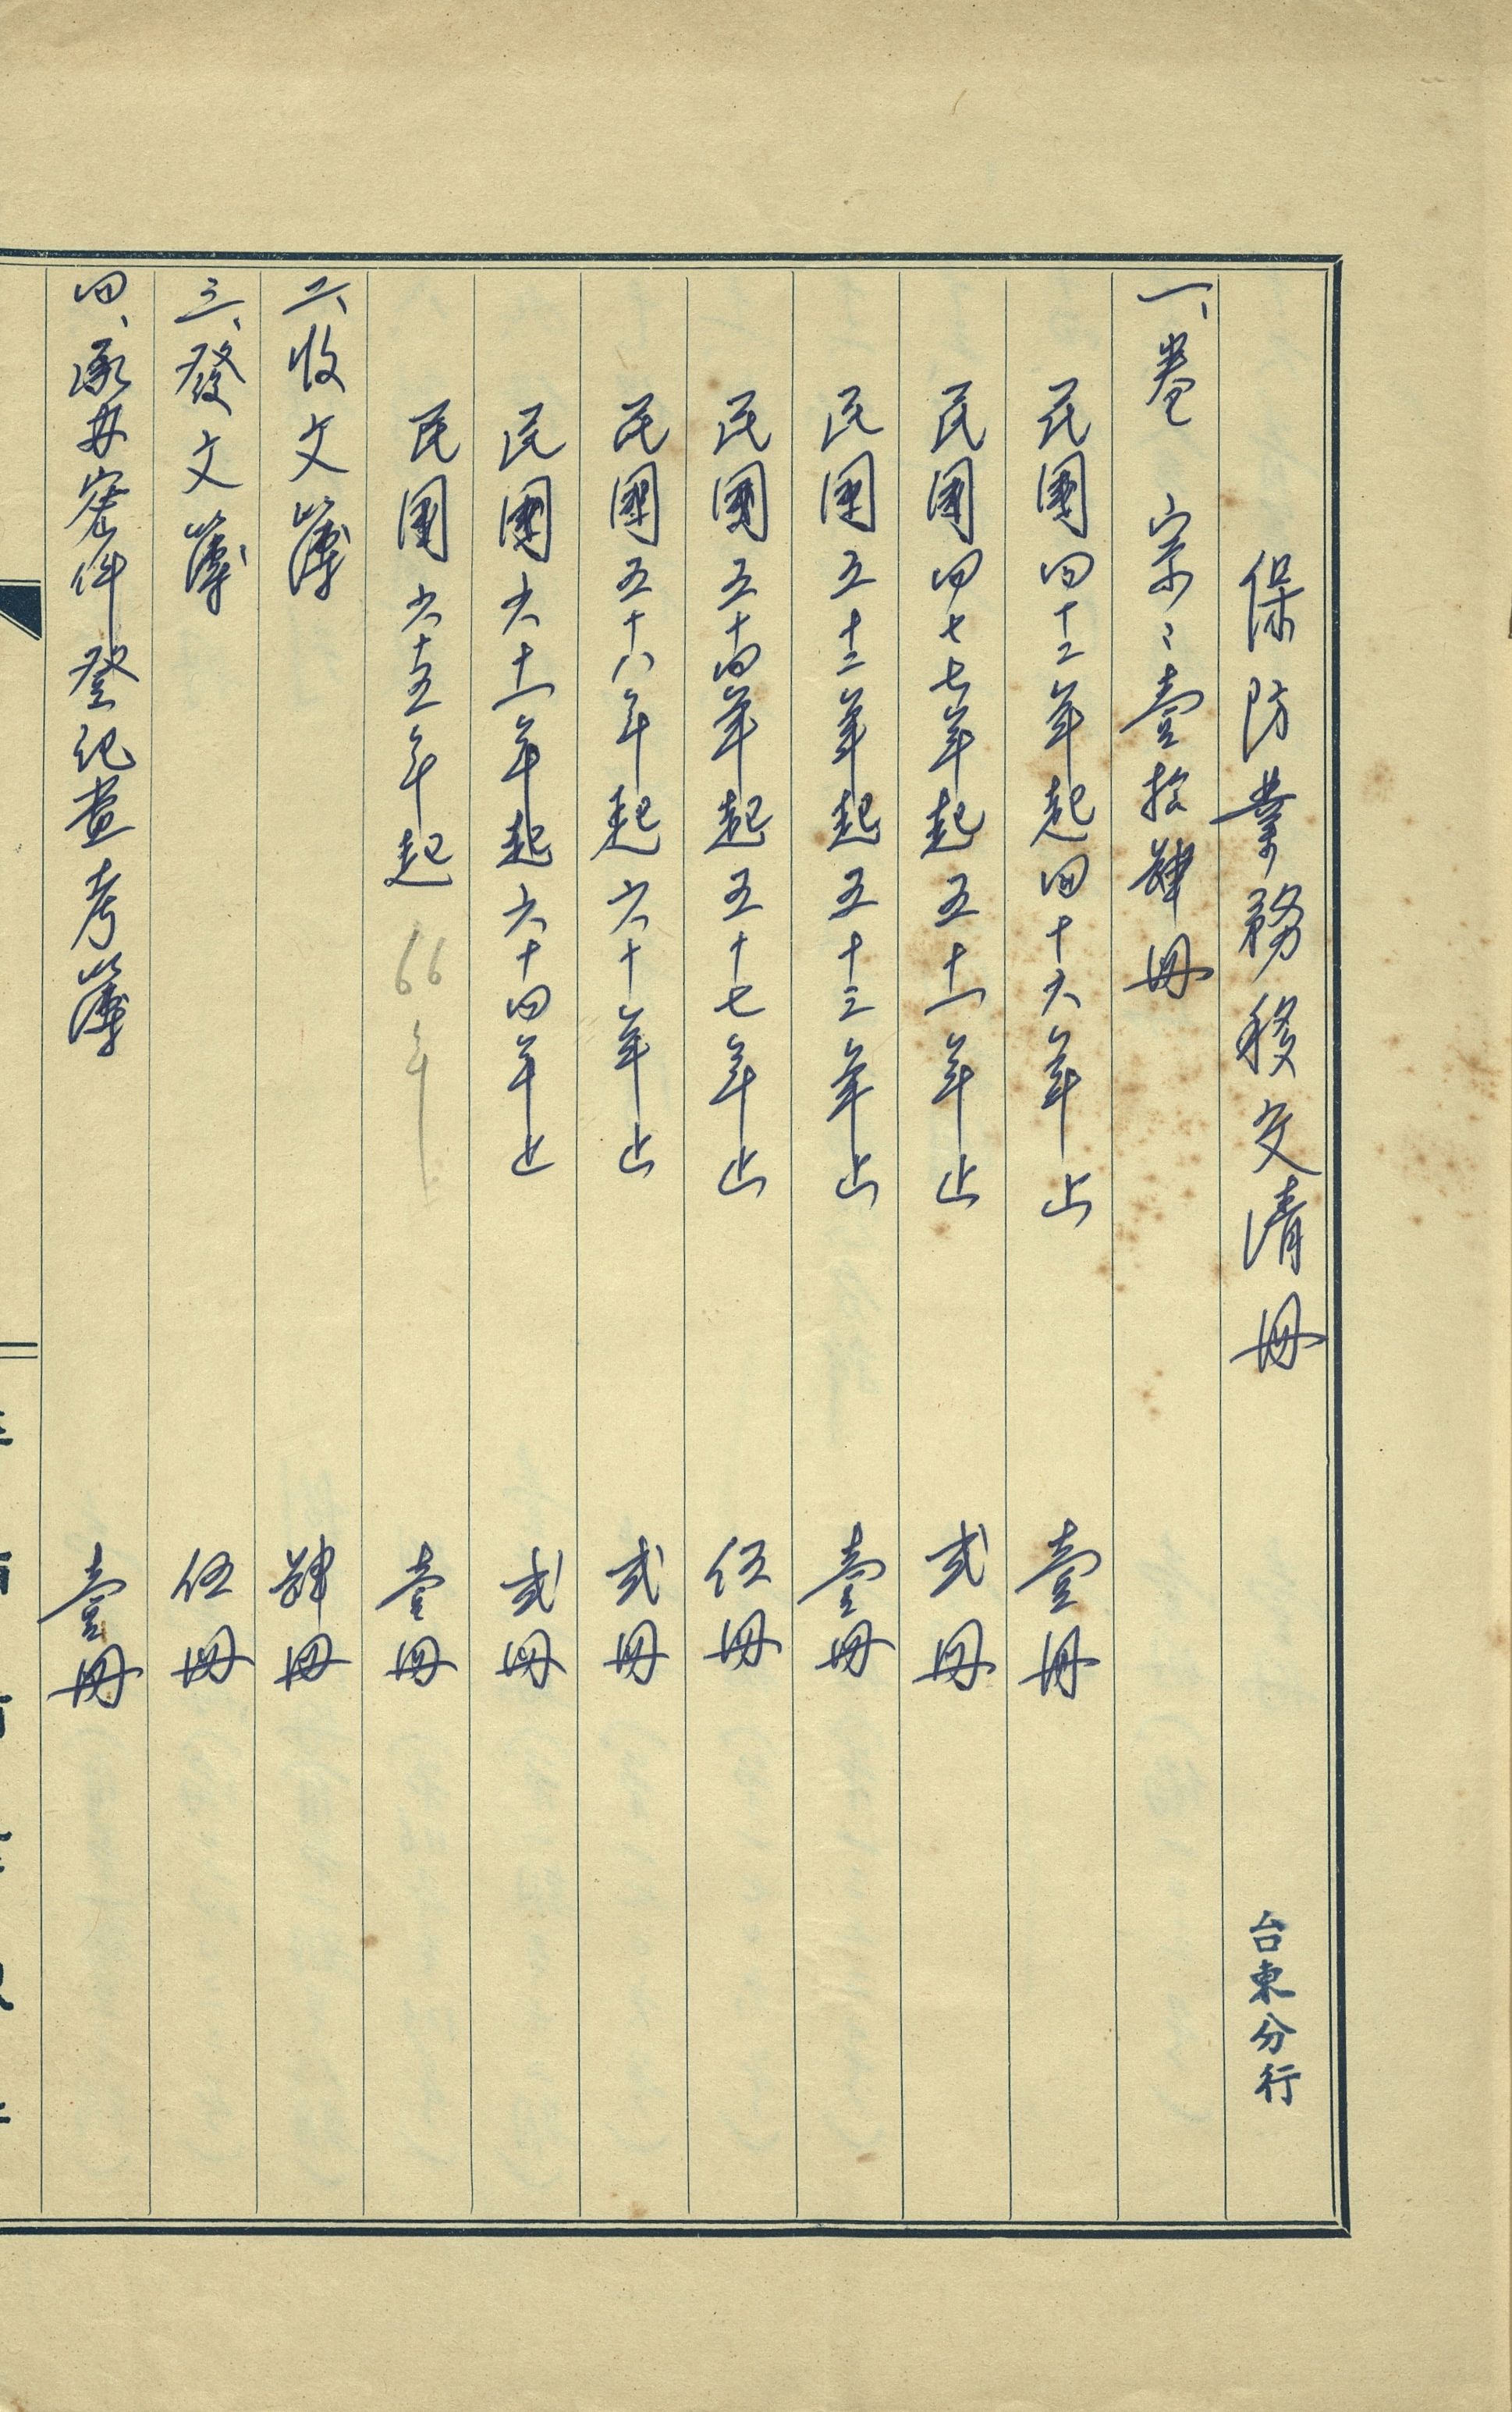 保防業務移交清冊 台東分行
一、卷 宗：壹拾肆冊
民國四十二年起四十六年止 壹冊
民國四七七年起五十一年止 弍冊
民國五十二年起五十三年止 壹冊
民國五十四年起五十七年止 伍冊
民國五十八年起六十年止 弍冊
民國六十一年起六十四年止 弍冊
民國六十五年起 66年 壹冊
二、收文簿 肆冊
三、發文簿 伍冊
四、承办密件登記查考簿 壹冊